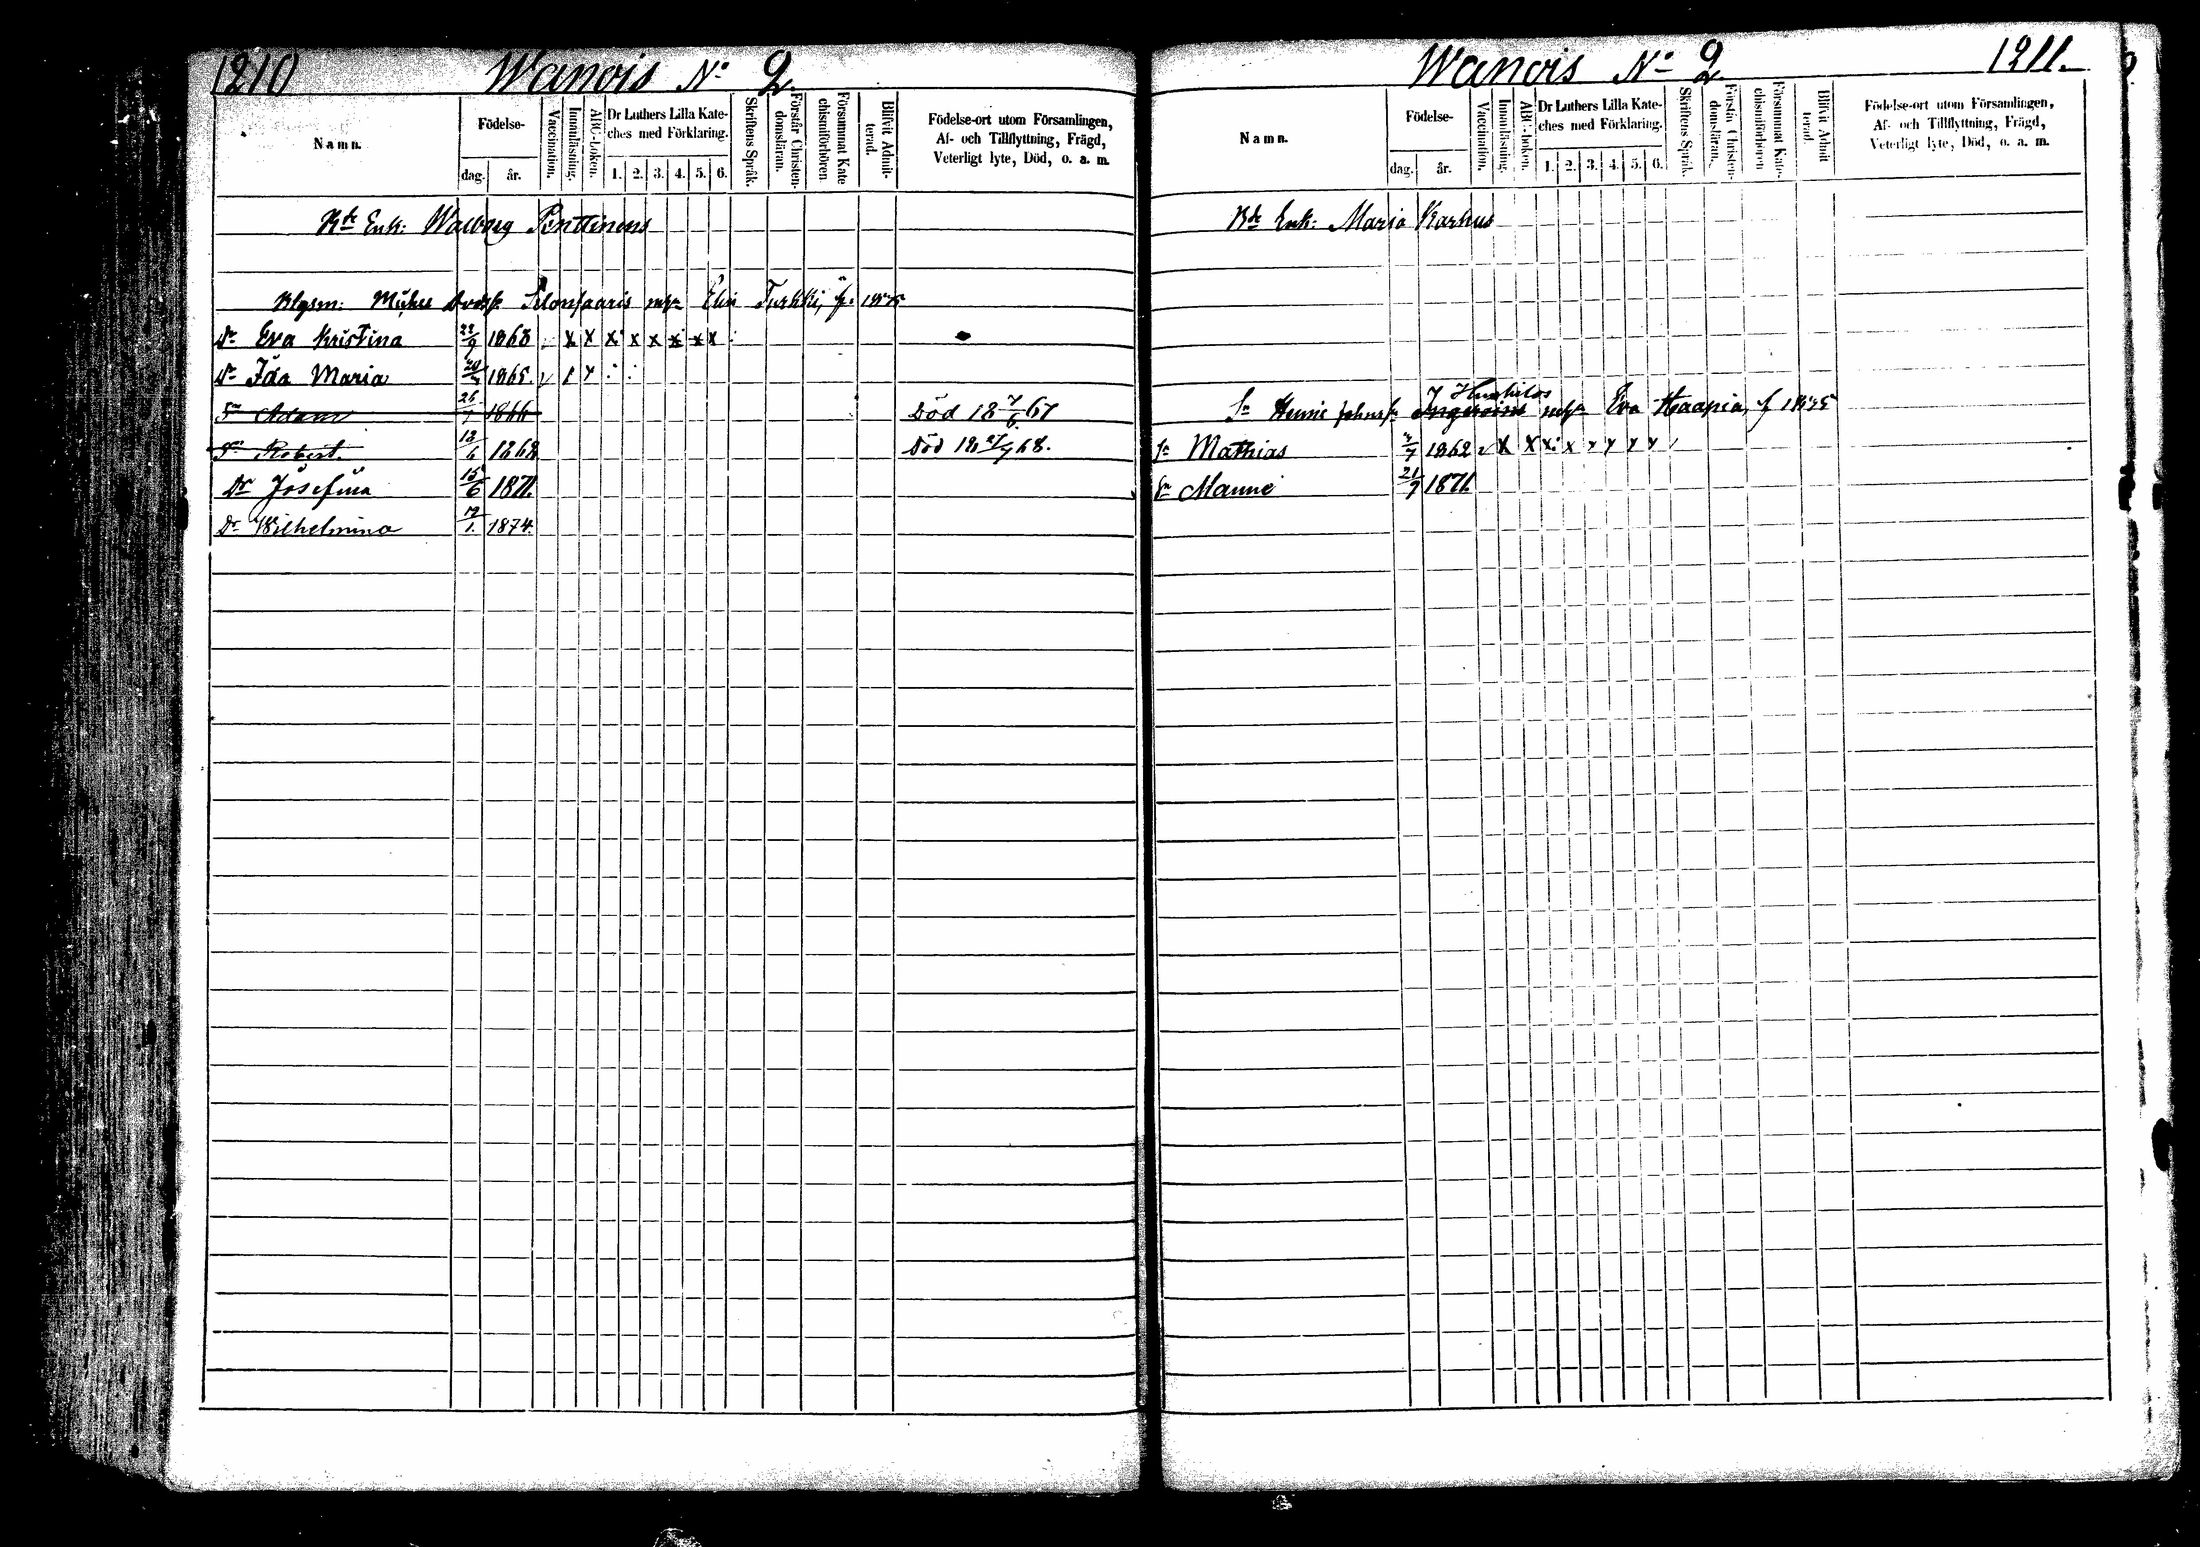 1210 Wanois No 2
Namn.
Födelse-
dag. år.
Vaccination.
Innanläsning.
ABC-boken.
Dr Luthers Lilla Kateches med Förklaring.
1. 2. 3. 4. 5. 6.
Skriftens Språk.
Förstår Christendomsläran.
Försummat Katechismiförhören
Blifvit Admitterad.
Födelse-ort utom Församlingen,
Af- och Tillflyttning, Frägd,
Veterligt lyte, Död, o. a. m.
Enk: Walborg Penttinens
Elin Turkki, f. 1835
Dr Eva Kristina 22/9 1863 x x x x x x x x
Dr Ida Maria 1865.
Sn Adam 26/7 1866 Död 18 7/6 67
Sn Robert. 12/6 1868 Död 18 68.
Dr Josefina 15/6 1871.
Dr Wilhelmina 12/1. 1874.
Wanois No 2 1211.
Namn.
Födelse-
dag. år.
Vaccination.
Innanläsning.
ABC-boken.
Dr Luthers Lilla Kateches med Förklaring.
1. 2. 3. 4. 5. 6.
Skriftens Språk.
Förstår Christendomsläran.
Försummat Katechismiförhören
Blifvit Admitterad.
Födelse-ort utom Församlingen,
Af- och Tillflyttning, Frägd,
Veterligt lyte, Död, o. a. m.
Enk: Maria Karhus
Eva Haapia, f 1835
Sn Mathias 1862
Sn Manne 21/9 1871.